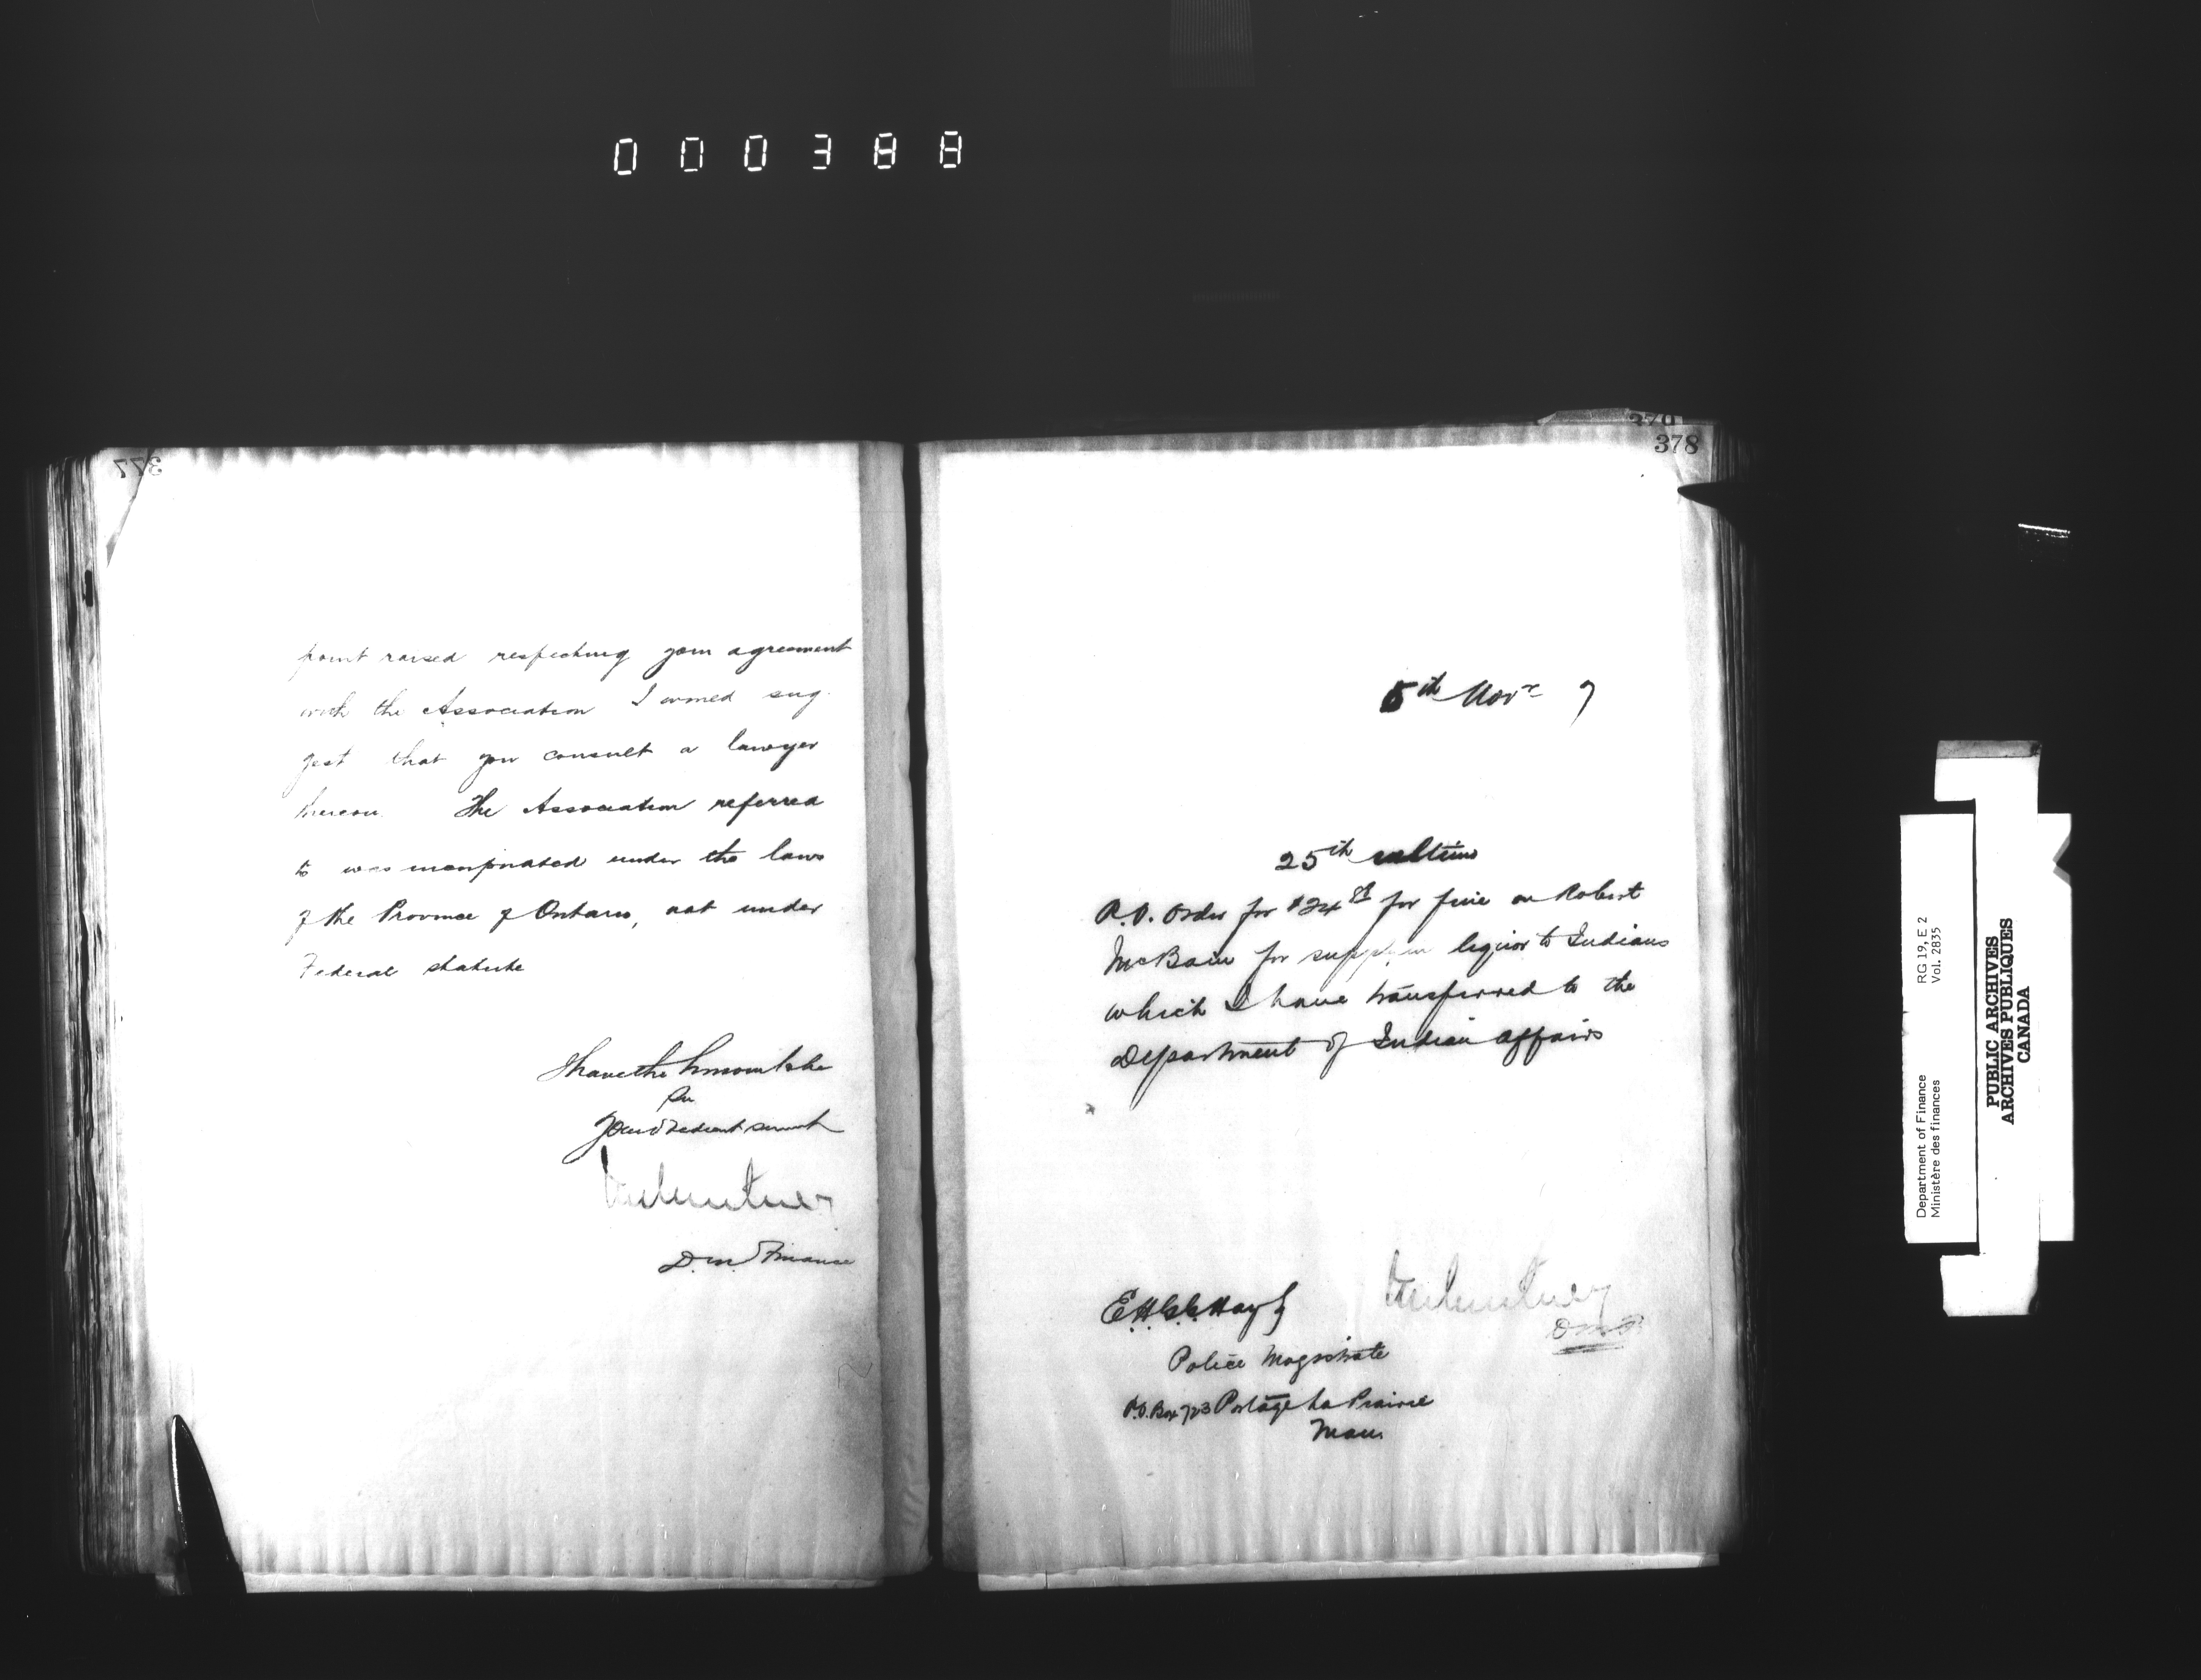 000388
377
point raised respecting your agreement
with the Association I would sug-
gest that you consult a lawyer
thereon. The Association referred
to was incorporated under the laws
of the Province of Ontario, not under
Federal statute
I have the honour to be
Sir
Your obedient servant
D. M. Finance
378
5th Novr 7
25th ultimo
P.O. Order for $24 for fine on Robert
McBain for supplyin liquor to Indians
which I have transferred to the
Department of Indian Affairs
D M F.
E.H.G.G. Hay Esq
Police Magistrate
P.O. Box 723 Portage La Prairie
Man.
Department of Finance RG 19, E 2
Ministère des finances Vol. 2835
PUBLIC ARCHIVES
ARCHIVES PUBLIQUES
CANADA